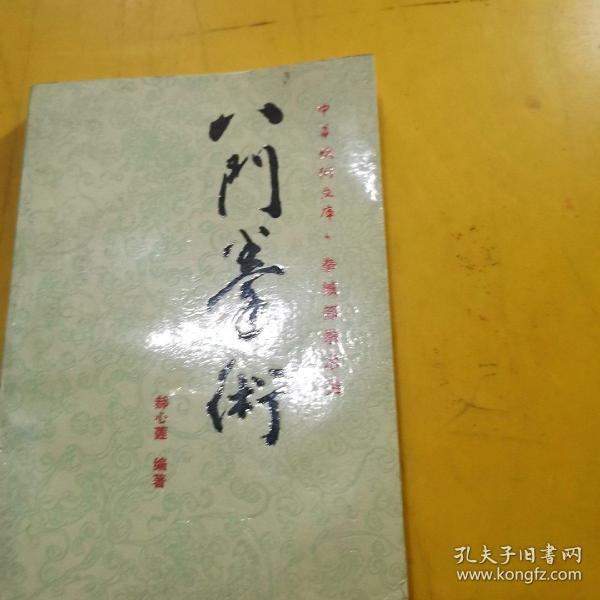 中华武术文库·拳械部拳术类
八門拳術
郝心莲 编著
孔夫子旧书网
www.kongfz.com